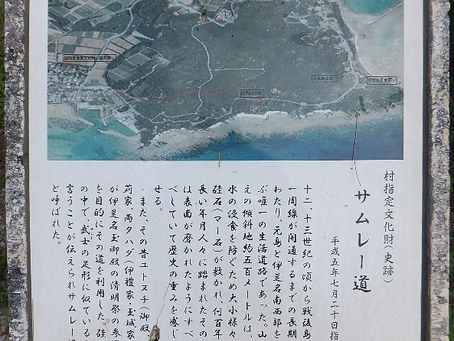 村指定文化財(史跡)
サムレー道
平成五年七月二十日指
十二、十三世紀の頃から戦後島
一周線が開通するまでの長期
わたり、元島と伊是名南西部を
ぶ唯一の生活道路であった。山
えの傾斜地約五百メートルは、
水の侵食を防ぐため大小様々
硅石(マー石)が敷かれ、何百年
長い年月人々に踏まれたその
は表面が磨かれたようにすべ
べしていて歴史の重みを感じ
せる。
また、その昔ユートヌチ・御殿
苅家・両タハダ(伊禮家・玉城家
が伊是名玉御殿の清明祭の参
を目的にその道を利用した。硅
の中で、武士の足形に似ている
言うことが伝えられサムレー道
と呼ばれた。